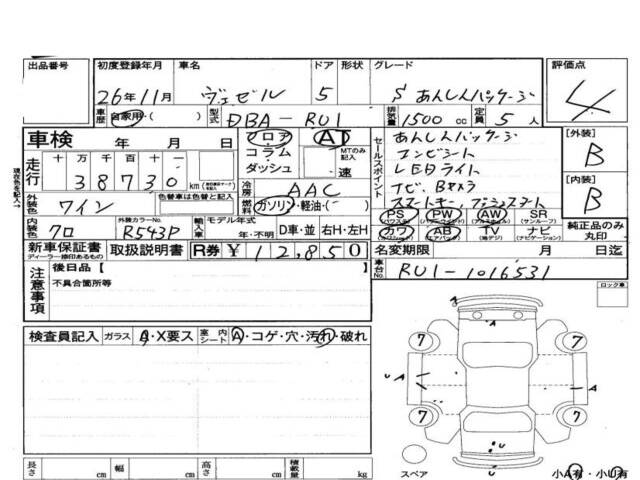 出品番号 初度登録年月 車名 ドア 形状 グレード 評価点
26年11月 ヴェゼル 5 S あんしんパッケージ 4
車歴 自家用・( ) 型式 DBA-RU1 排気量 1500 cc 定員 5 人
車検 年 月 日 フロア AT セールスポイント あんしんパッケージ [外装]
走行 十 万 千 百 十 一 コラム MTのみ記入 コンビシート B
38730 km ダッシュ 速 LEDライト [内装]
冷房 AAC ナビ、Bカメラ B
外装色 ワイン 色替車は色替と記入 燃料 ガソリン・軽油・( ) スマートキー、プッシュスタート
内装色 クロ 外装カラーNo. R543P 輸入車 モデル年式 年・不明 D車・並 右H・左H PS PW AW SR
(パワステ) (パワーウィンドウ) (サンルーフ)
カワ AB TV ナビ 純正品のみ丸印
(エアバック) (地デジ) (ナビゲーション)
新車保証書 取扱説明書 R券 ¥12,850 名変期限 月 日迄
ディーラー捺印あるもの
車台No. RU1-1016531
注意事項 後日品【 】
不具合箇所等
ロック車
検査員記入 ガラス A・X要ス 室内シート A・コゲ・穴・汚れ・破れ
7 7
U A A
7 7
A
U
U
スペア 小A有・小U有
長さ cm 幅 cm 高さ cm 積載量 kg
現在色を記入→